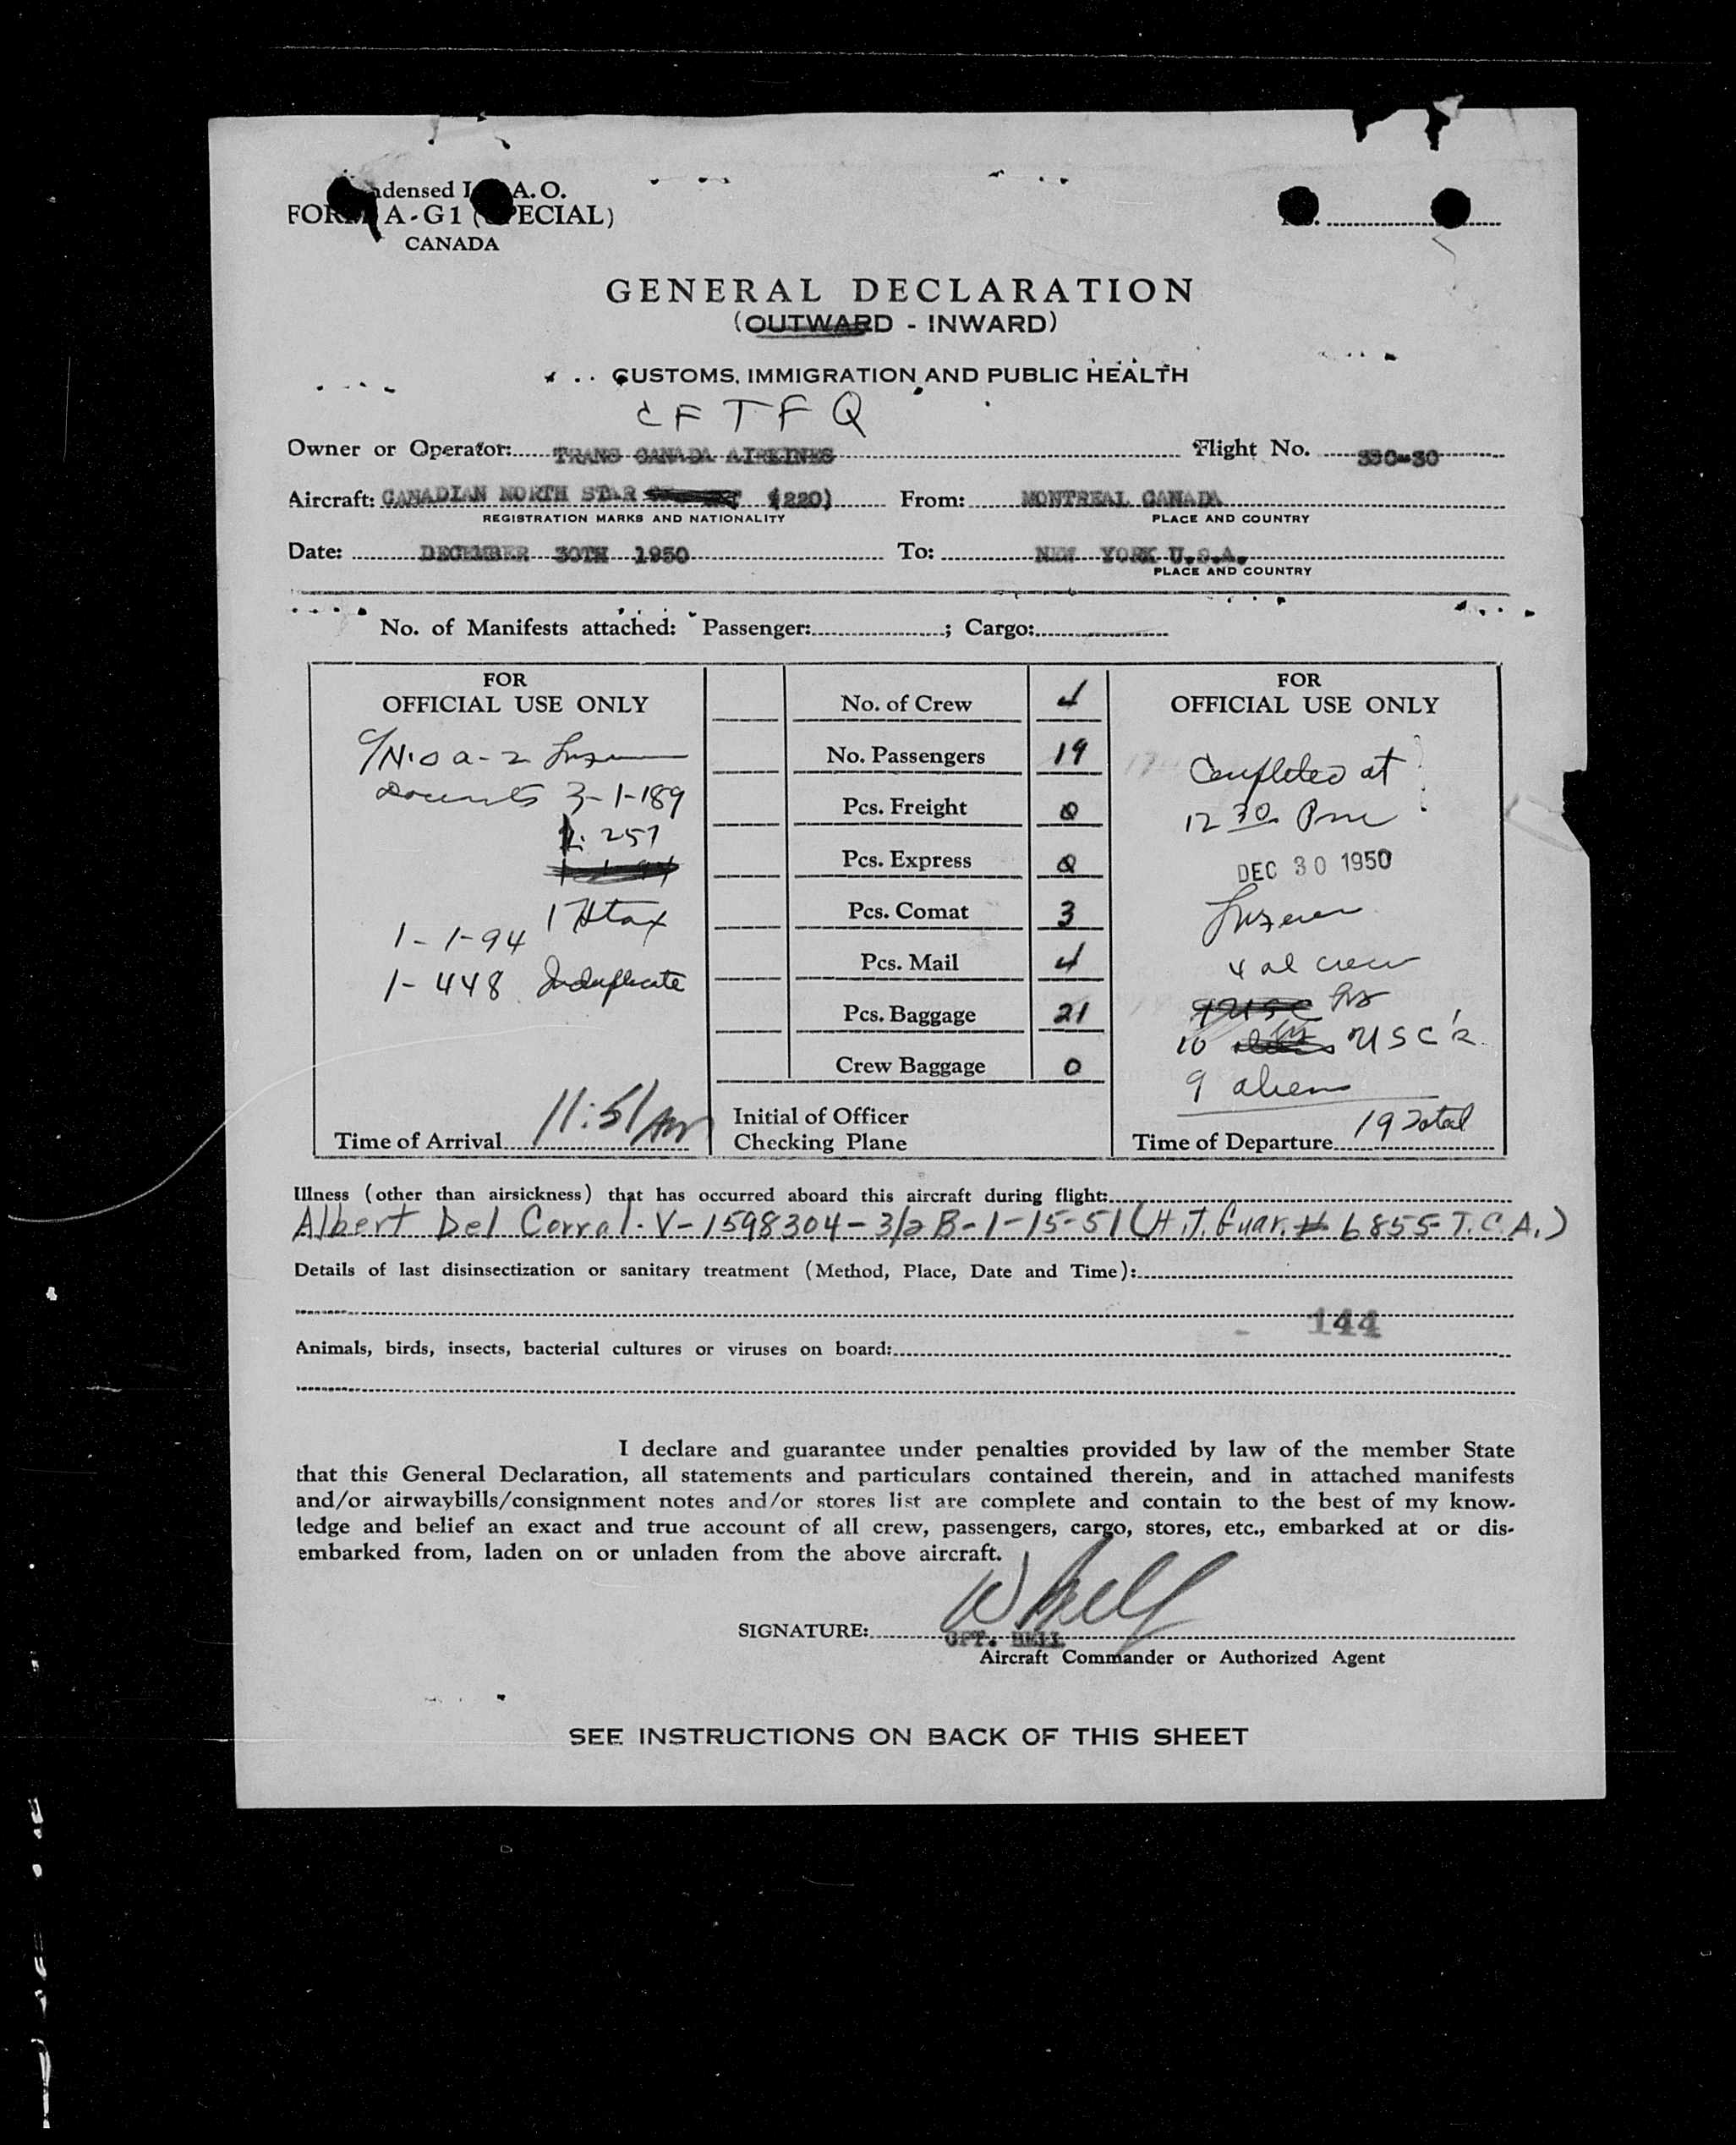 ndensed I A. O.
FOR A - G 1 ( PECIAL)
CANADA
GENERAL DECLARATION
(OUTWARD - INWARD)
CUSTOMS, IMMIGRATION AND PUBLIC HEALTH
CFTFQ
Owner or Operator: TRANS CANADA AIRLINES Flight No. 350-30
Aircraft: CANADIAN NORTH STAR (220) From: MONTREAL CANADA
REGISTRATION MARKS AND NATIONALITY PLACE AND COUNTRY
Date: DECEMBER 30TH 1950 To: NEW YORK U.S.A.
PLACE AND COUNTRY
No. of Manifests attached: Passenger: ; Cargo:
FOR
OFFICIAL USE ONLY
a-2
3-1-189
257
1 Htax
1-1-94
1-448 Induplicate
Time of Arrival 11:51 AM
No. of Crew 4
No. Passengers 19
Pcs. Freight 0
Pcs. Express 0
Pcs. Comat 3
Pcs. Mail 4
Pcs. Baggage 21
Crew Baggage 0
Initial of Officer
Checking Plane
FOR
OFFICIAL USE ONLY
Completed at
12 30 Pm
DEC 30 1950
4 al crew
10 USC's
9 aliens
19 Total
Time of Departure
Illness (other than airsickness) that has occurred aboard this aircraft during flight:
Albert Del Corral - V-1598304-3/2 B-1-15-51 (H.T. Guar. # 6855-T.C.A.)
Details of last disinsectization or sanitary treatment (Method, Place, Date and Time):
144
Animals, birds, insects, bacterial cultures or viruses on board:
I declare and guarantee under penalties provided by law of the member State
that this General Declaration, all statements and particulars contained therein, and in attached manifests
and/or airwaybills/consignment notes and/or stores list are complete and contain to the best of my know-
ledge and belief an exact and true account of all crew, passengers, cargo, stores, etc., embarked at or dis-
embarked from, laden on or unladen from the above aircraft.
W Bell
SIGNATURE: CPT. BELL
Aircraft Commander or Authorized Agent
SEE INSTRUCTIONS ON BACK OF THIS SHEET